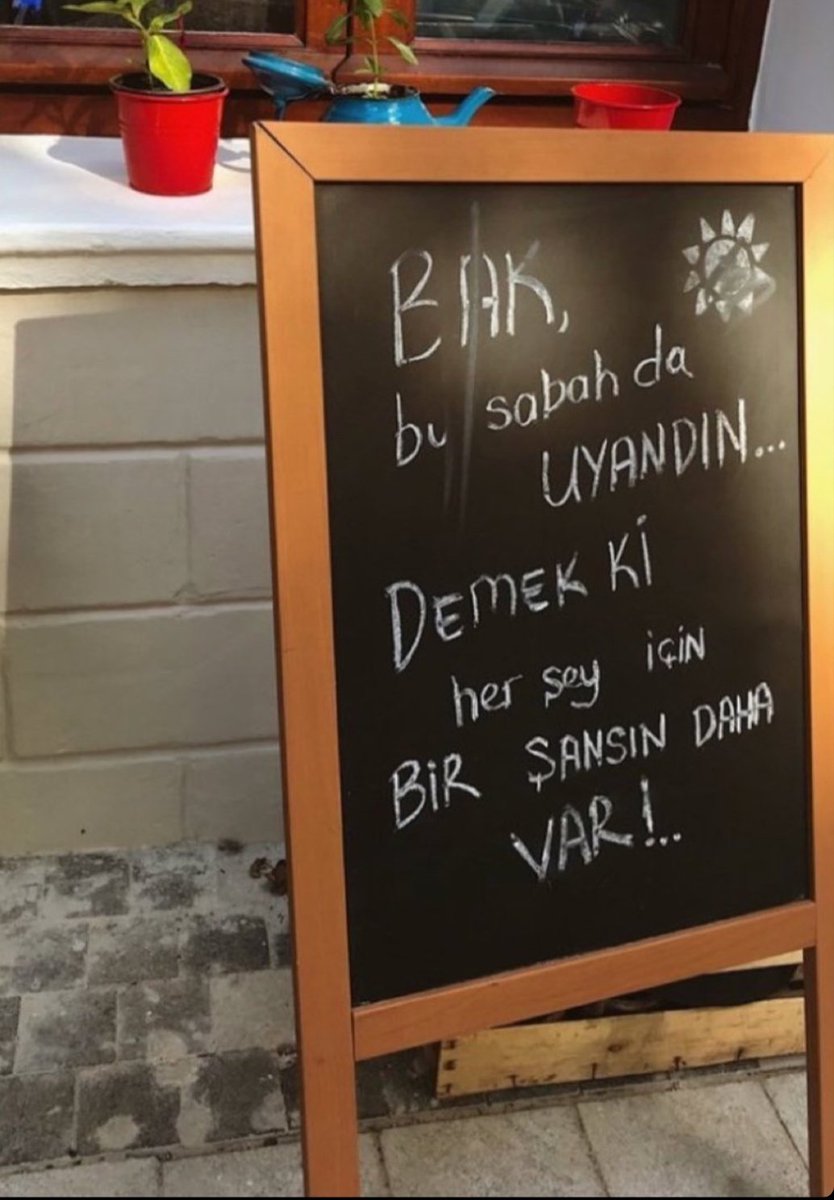 BAK,
bu sabah da
UYANDIN...
DEMEK Kİ
her şey için
BİR ŞANSIN DAHA
VAR!..